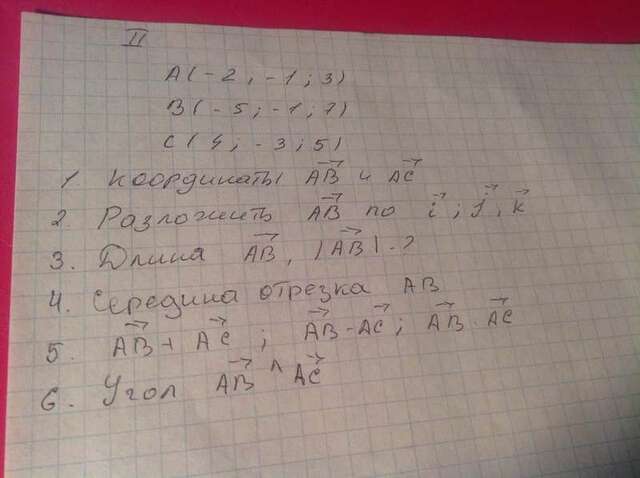 II
A(-2, -1; 3)
B(-5; -1; 7)
C(4; -3; 5)
1 Координаты AB⃗ и AC⃗
2. Разложить AB⃗ по i⃗; j⃗, k⃗
3. Длина AB⃗, |AB⃗| - ?
4. Середина отрезка AB
5. AB⃗ + AC⃗; AB⃗ - AC⃗; AB⃗ · AC⃗
6. Угол AB⃗ ^ AC⃗